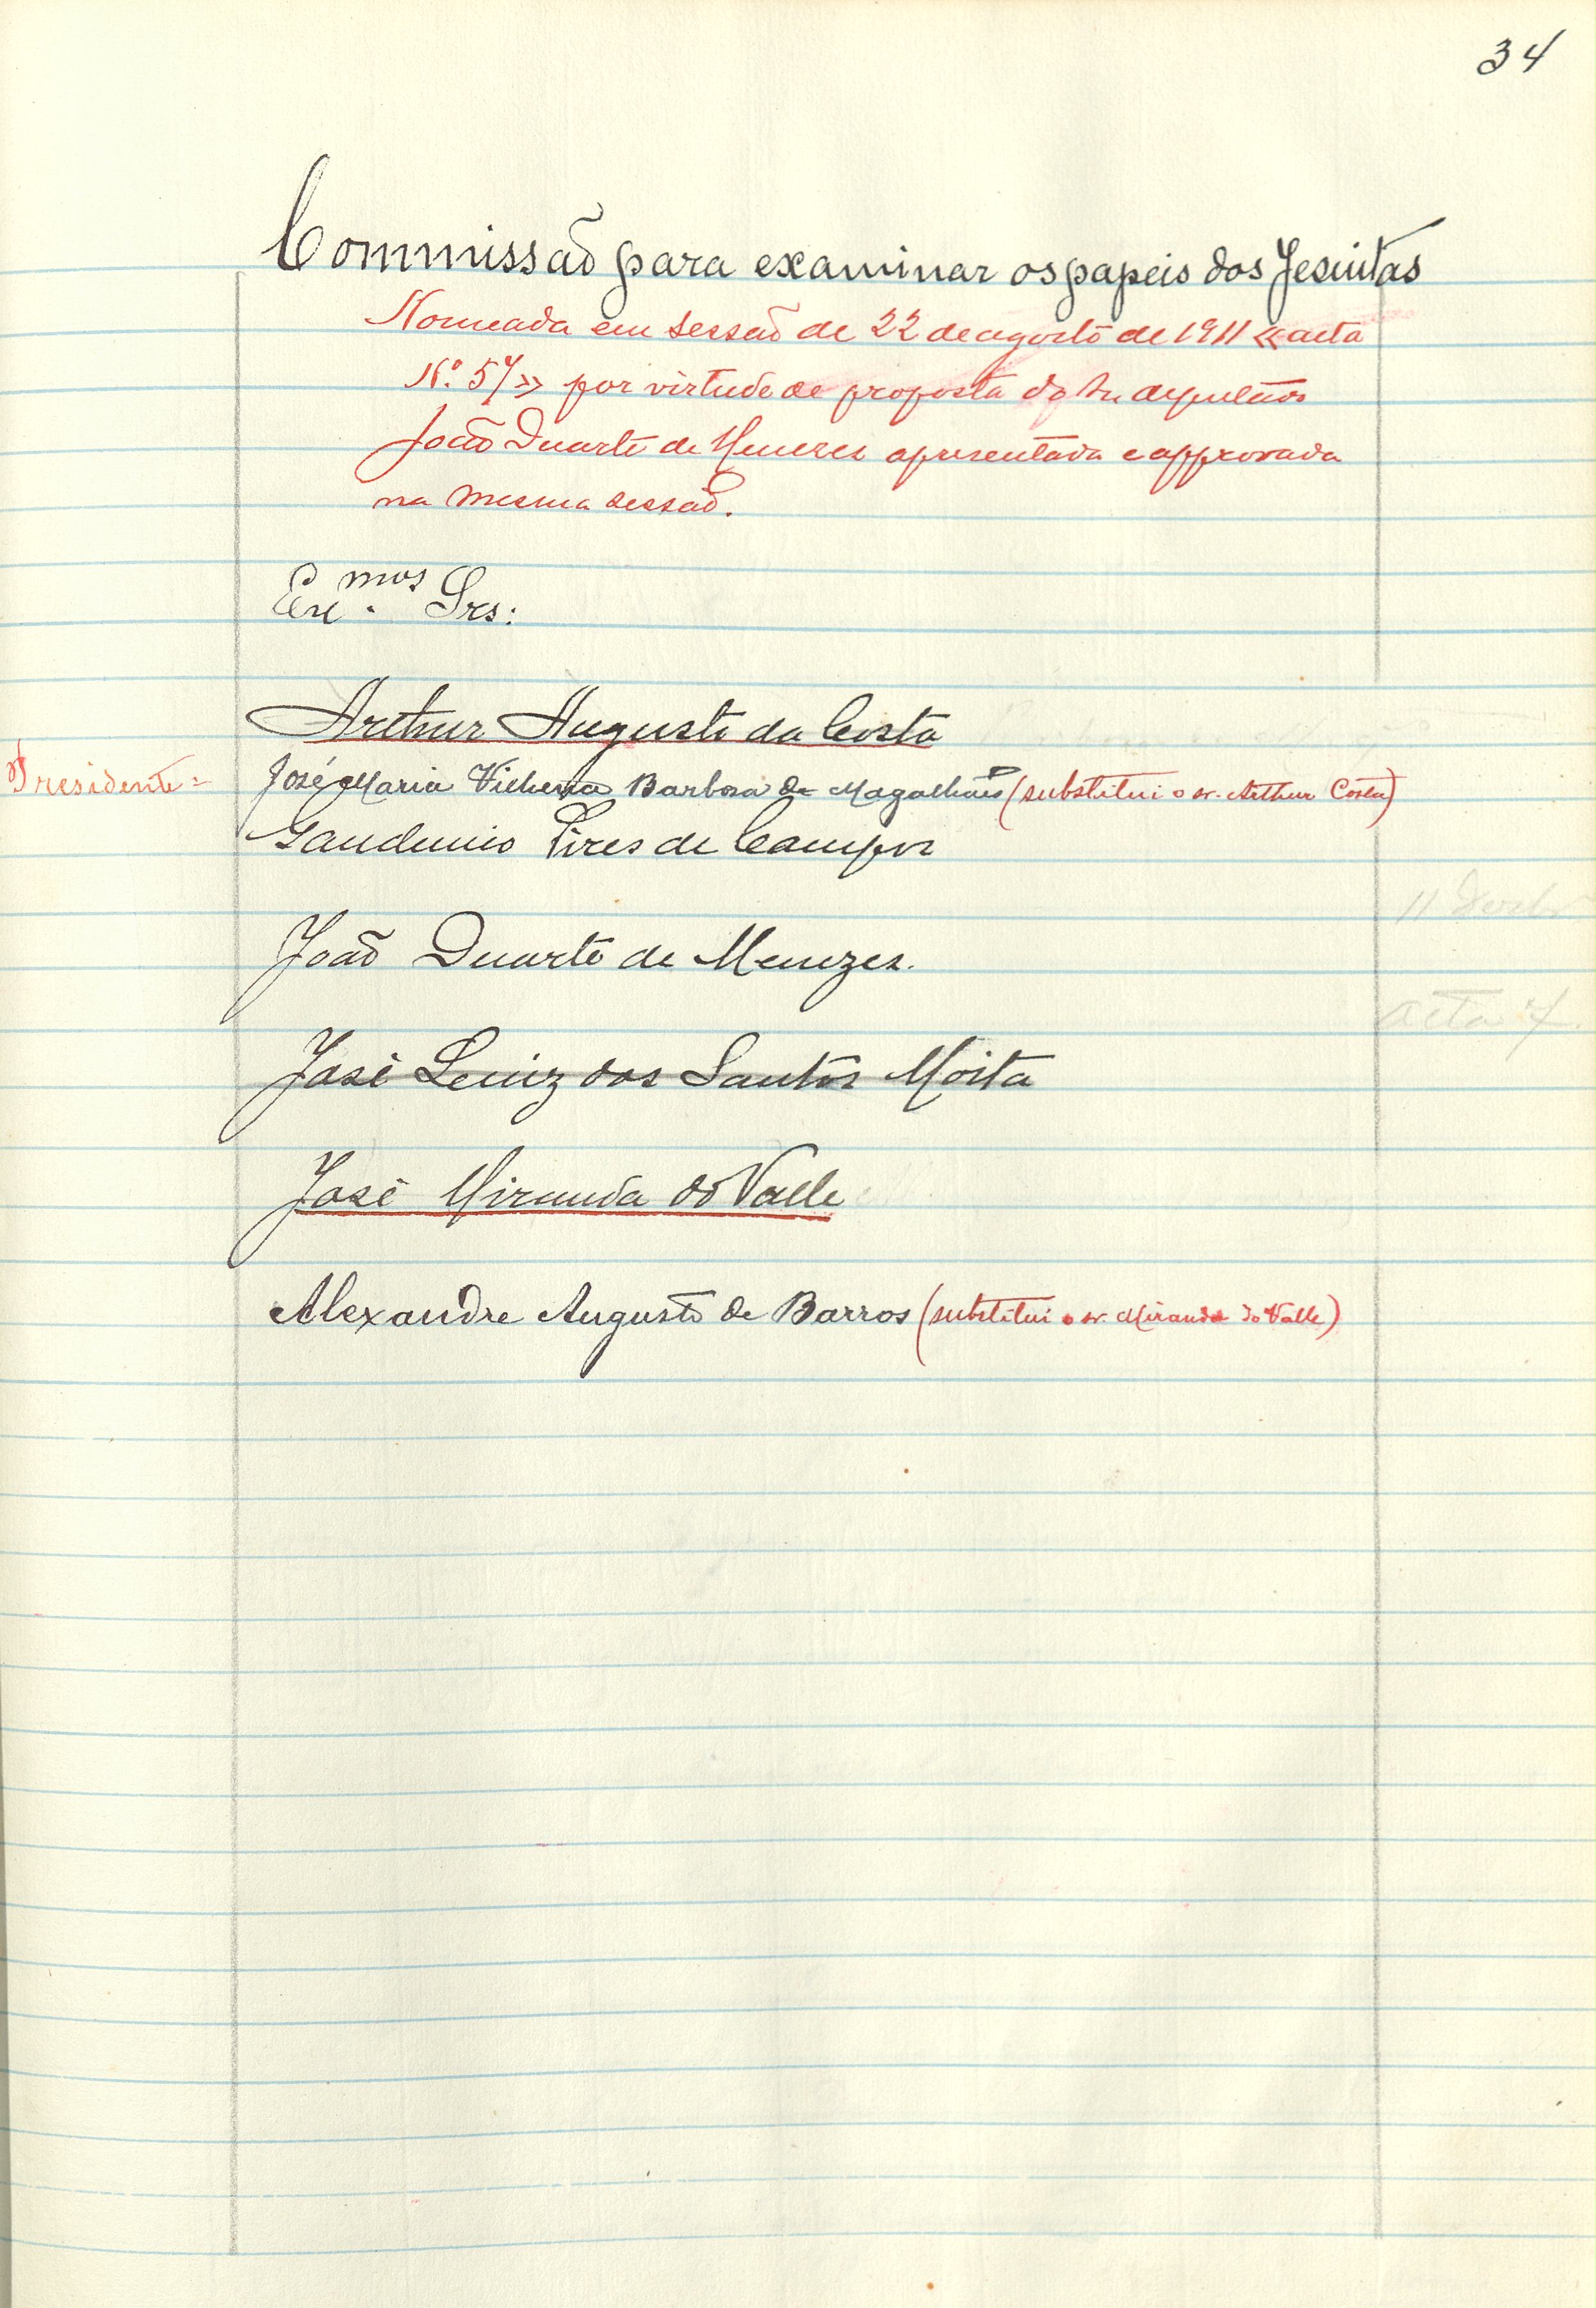 34
Commissão para examinar os papeis dos Jesuitas
Nomeada em sessão de 22 de agosto de 1911 «acta
Nº 57» por virtude de proposta do Sr deputado
João Duarte de Menezes apresentada e approvada
na mesma sessão.
Ex.mos Srs:
Arthur Augusto da Costa
Presidente = José Maria Vilhena Barbosa de Magalhães (substitui o sr. Arthur Costa)
Gaudencio Pires de Campos
11 Dezbro
João Duarte de Menezes.
acta 7
José Luiz dos Santos Moita
José Miranda do Valle
Alexandre Augusto de Barros (substitui o sr. Miranda do Valle)